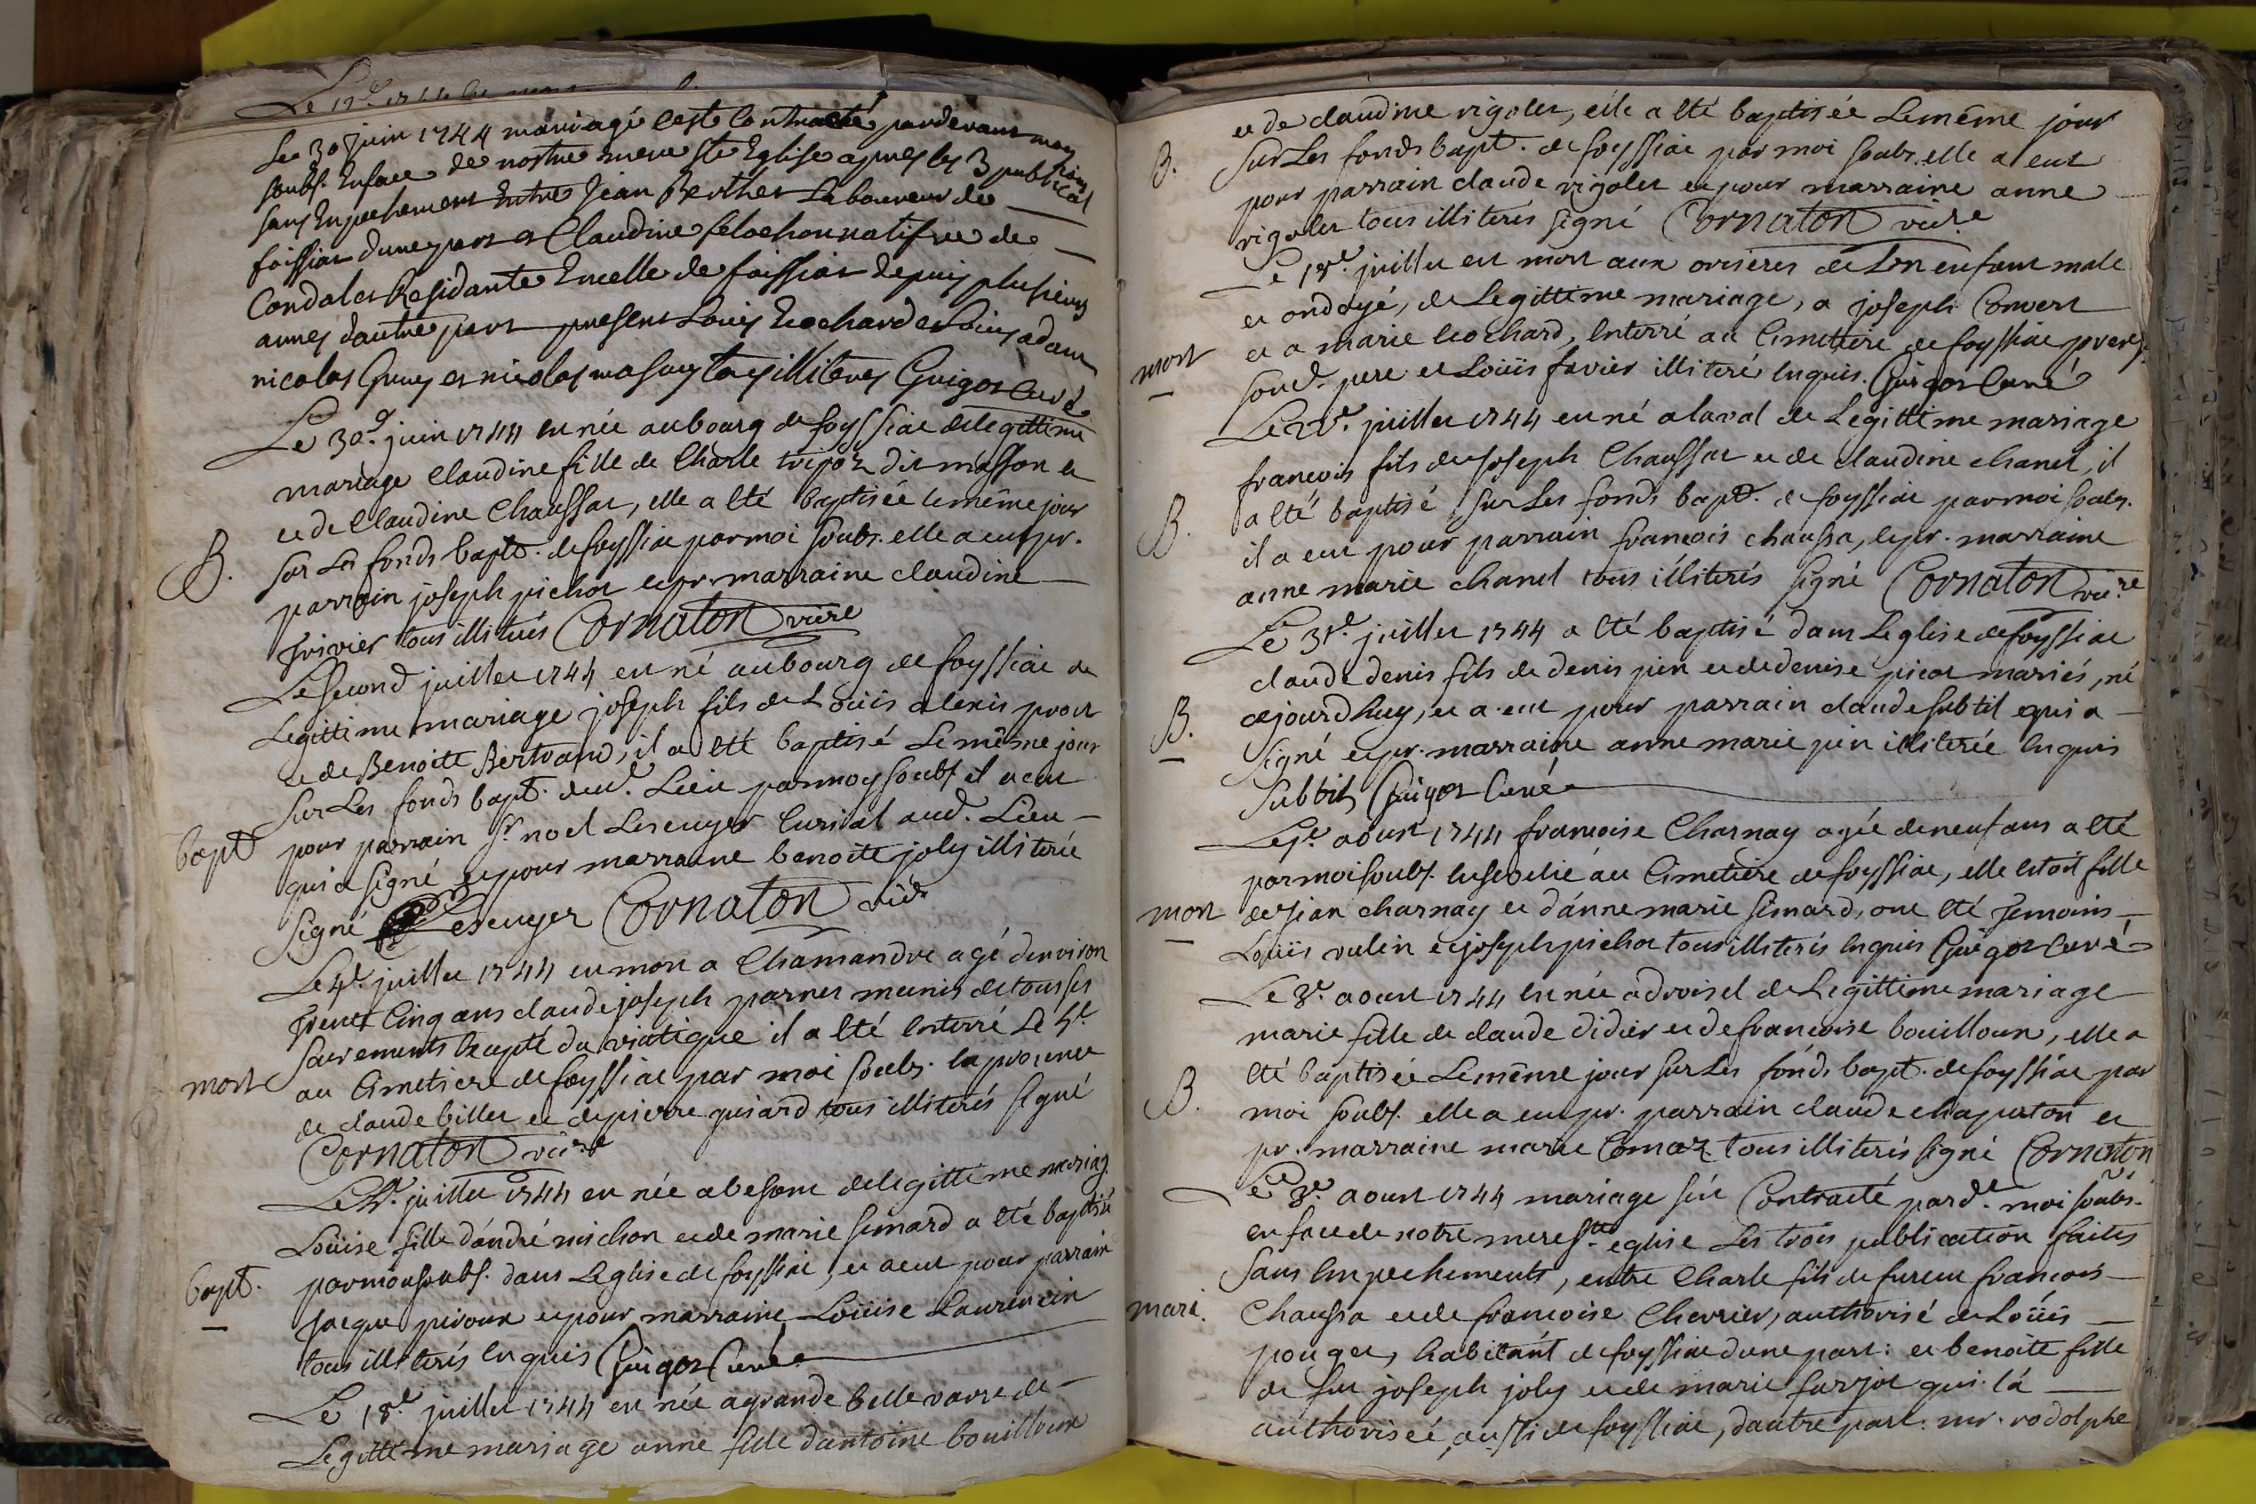 Le 30 juin 1744 mariage est Contracté pardevant moy
soubs. Enface de nostre mere ste Eglise apres les 3 publicat
ions
sans Enpechement Entre Jean Berthet Laboureur de
foissiat dune part et Claudine felochon natifve de
Condal et Residante Encelle de foissiat depuis plusieurs
annes dautre part present Louis Ecochard et Louis adam
nicolas Guny et nicolas masuy tous illiteres Guigot Curé
Le 30.e juin 1744 est née au bourg de foyssiac de legittime
mariage Claudine fille de Charle tripoz dit masson et
et de Claudine Chaussat, elle a eté baptisée le même jour
B. sur Les fonds bapt. de foyssiac par moi soubs. elle a eu pr.
parrain joseph pichot et pr. marraine claudine
frivier tous illiterés Cornaton vicre
Le second juillet 1744 est né au bourg de foyssiac de
Legittime mariage joseph fils de Loüis alexis prost
et de Benoitte Bertrand, il a eté baptisé Le même jour
Sur Les fonds bapt. dud. Lieu par moy soubs. il a eut
bapt pour parrain Sr. noel Lesenyer Curial aud. Lieu
qui a signé et pour marraine benoite joly illiterée
signé Lesenyer Cornaton vicre
Le 4.e juillet 1744 est mort a Chamandre agé denviron
trente Cinq ans claude joseph parnet munis de tous ses
sacrements Excepté du viatique il a eté Enterré Le 5.e
mort au Cimetiere de foyssiac par moi soubs. en presence
de claude billet et de pierre guiard tous illiterés signé
Cornaton vicre
Le juillet 1744 est née a besant de legittime mariag.
Loüise fille d'andré michon et de marie simard a eté baptisé
bapt. par moi soubs. dans Leglise de foyssiac, et a eut pour parrain
jacque piroux et pour marraine Loüise Laurencin
tous illiterés Enquis Guigot Curé
Le 18.e juillet 1744 est née a grande belle vavre de
Legittime mariage anne fille d'antoine bouilloux
et de claudine rigolet, elle a eté baptisée Le même jour
B. Sur Les fonds bapt. de foyssiac par moi soubs. elle a eut
pour parrain claude rigolet et pour marraine anne
rigolet tous illiterés signé Cornaton vicre
Le 18.e juillet est mort aux oriseres de Lon enfant male
et ondoyé, de Legittime mariage, a joseph Convert
mort et a marie Ecochard, Enterré au Cimetiere de foyssiac present
soud. pere et Loüis favier illiteré Enquis. Guigot Curé
Le juillet 1744 est né a laval de Legittime mariage
francois fils de joseph Chaussat et de claudine chanel, il
B. a eté baptisé sur Les fonds bapt. de foyssiac par moi soubs.
il a eut pour parrain francois chaussa, et pr. marraine
anne marie chanel tous illiterés signé Cornaton vicre
Le 31.e juillet 1744 a eté baptisé dans Leglise de foyssiac
claude denis fils de denis pin et de denise picot mariés, né
B. aujourdhuy, et a eut pour parrain claude subtil qui a
signé et pr. marraine anne marie pin illiterée Enquis
subtil Guigot Curé
Le 1.e aoust 1744 francoise Charnay agée de neuf ans a eté
par moi soubs. Ensevelié au Cimetiere de foyssiac, elle estoit fille
mort de jian charnay et d'anne marie simard, ont eté temoins
Loüis vulin et joseph pichot tous illiterés Enquis Guigot Curé
Le 3.e aoust 1744 est née a droisel de Legittime mariage
marie fille de claude didier et de francoise bouilloux, elle a
eté baptisée Le même jour sur Les fonds bapt. de foyssiac par
B. moi soubs. elle a eut pr. parrain claude chapuzton et
pr. marraine marie Comaz tous illiterés signé Cornaton
Le 3.e aoust 1744 mariage fut Contracté pard.t moi soubs.
en face de notre mere ste. eglise Les trois publication faites
sans Enpechements, entre Charle fils de fureur francois
mari. Chaussa et de francoise Chevrier, authorisé de Loüis
pouget, habitant de foyssiac dune part: et benoite fille
de feu joseph joly et de marie farjot qui l'a
authorisée, aussi de foyssiac, dautre part. mr. rodolphe